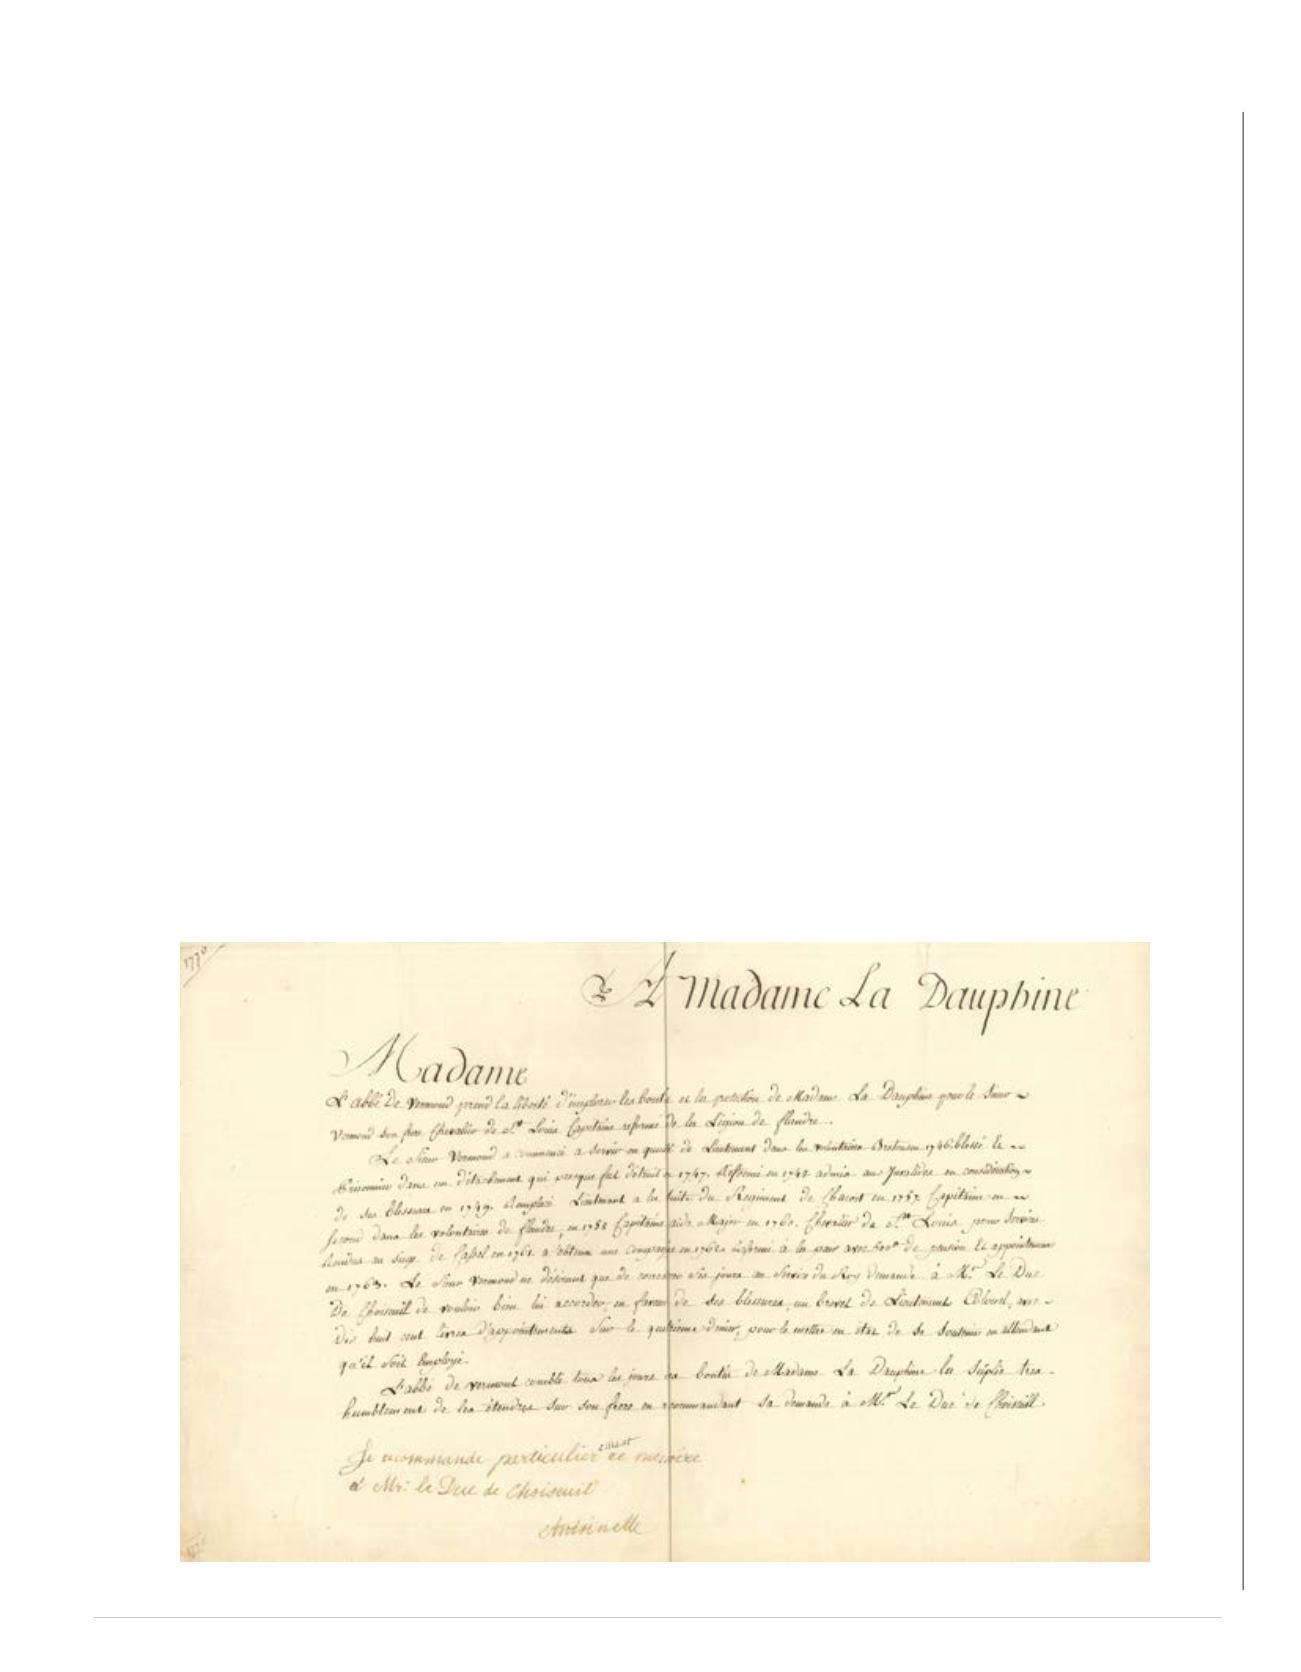 1770
A Madame La Dauphine
Madame
L'abbé De Vermond prend la liberté d'implorer les bontés et la protection de Madame La Dauphine pour le Sieur
Vermond son frere Chevalier de St. Louis Capitaine reformé de la Légion de flandre.
Le Sieur Vermond a commencé a servir en qualité de Lieutenant dans les volontaires Bretons en 1746. blessé Et
Prisonnier dans un détachement qui presque fut détruit en 1747. Réformé en 1748 admis aux Invalides en considération
de ses blessures en 1749. Remplacé Lieutenant a la suite du Regiment de en 1757. Capitaine en
second dans les volontaires de flandre, en 1758 Capitaine aide Major en 1760. Chevalier de St. Louis pour Services
Rendus au siege de Cassel en 1761 a obtenu une compagnie en 1762. réformé à la paix avec de pension Et appointemens
en 1763. Le Sieur Vermond ne désirant que de consacrer ses jours au Service du Roy demande à Mr. Le Duc
De Choiseuil de vouloir bien lui accorder, en faveur de ses blessures, un brevet de Lieutenant Colonel, avec
dix huit cent livres d'appointements Sur le quatrieme denier, pour le mettre en état de se soutenir en attendant
qu'il soit Employé.
L'abbé de vermont comblé tous les jours des bontés de Madame La Dauphine la suplie tres
humblement de les étendre sur son frere en recommandant sa demande à Mr. Le Duc de Choiseuil.
Je recommande particulierement ce memoire
a Mr. le Duc de Choiseuil
Antoinette